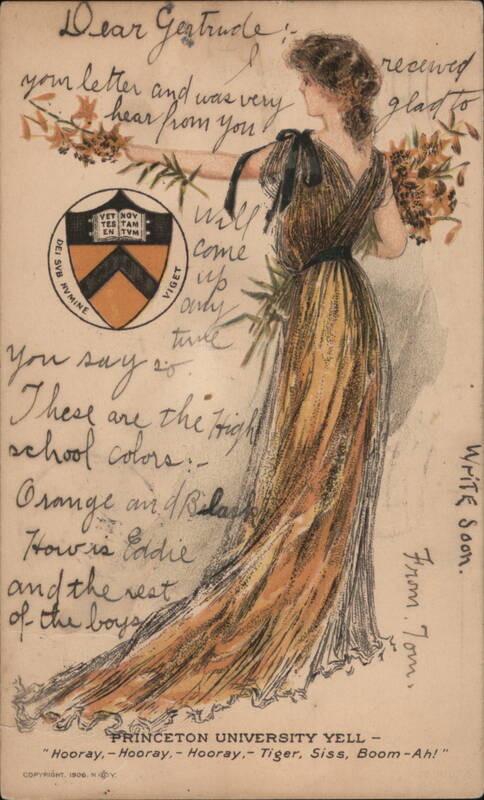 Dear Gertrude:-
I received
your letter and was very glad to
hear from you
Will
come
up
any
time
you say so.
These are the High
school colors:-
Orange and Black
How is Eddie
and the rest
of the boys
Write Soon.
From. Tom.
VET NOV
TES TAM
EN TVM
DEI SVB NVMINE VIGET
PRINCETON UNIVERSITY YELL –
"Hooray,- Hooray,- Hooray,- Tiger, Siss, Boom-Ah!"
COPYRIGHT, 1906, N Y.